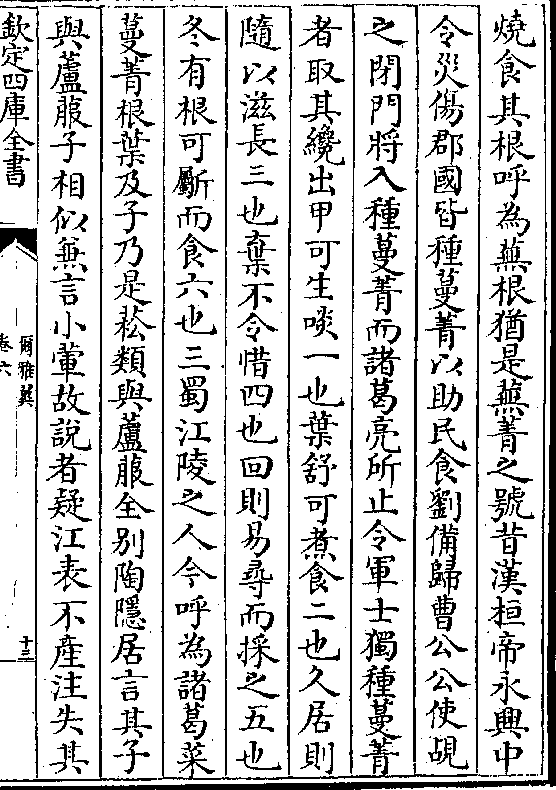 燒食其根呼為蕪根猶是蕪菁之號昔漢桓帝永興中
令災傷郡國皆種蔓菁以助民食劉備歸曹公公使覘
之閉門將入種蔓菁而諸葛亮所止令軍士獨種蔓菁
者取其纔出甲可生啖一也葉舒可煮食二也久居則
隨以滋長三也棄不令惜四也回則易尋而採之五也
冬有根可斸而食六也三蜀江陵之人今呼為諸葛菜
蔓菁根葉及子乃是菘類與蘆菔全别陶隱居言其子
與蘆菔子相似無言小葷故說者疑江表不產注失其
欽定四庫全書
爾雅翼
卷六
十三